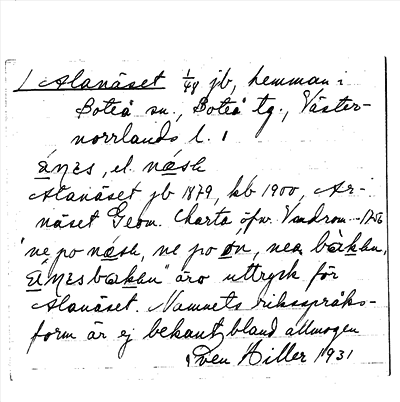 Alanäset 1/48 jb, hemman i
Boteå sn., Boteå tg., Väster-
norrlands l.
el. nǡsḙ
Alanäset jb 1879, kb 1900, Ar-
näset Geom. Charta öfver Undrom 1756
"ne po ne po nea
äro uttryck för
Alanäset. Namnets riksspråks-
form är ej bekant bland allmogen
Sven Hiller 1931